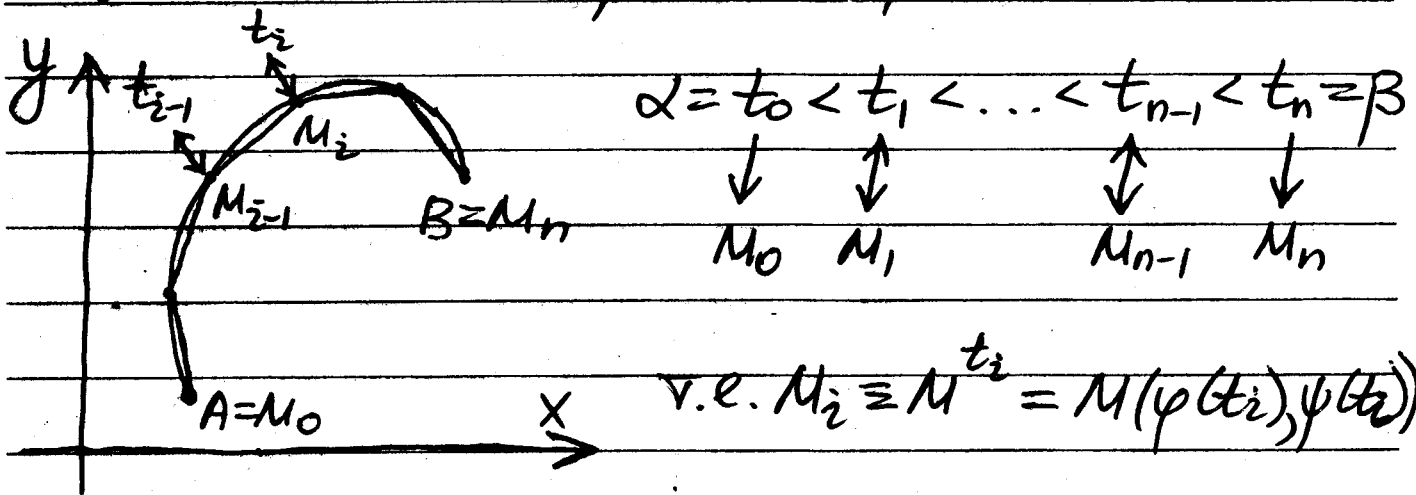 y
t_i
t_{i-1}
M_i
M_{i-1}
B=M_n
A=M_0
x
α = t_0 < t_1 < ... < t_{n-1} < t_n = β
↓ ↕ ↕ ↓
M_0 M_1 M_{n-1} M_n
т.е. M_i ≡ M^{t_i} = M(φ(t_i), ψ(t_i))